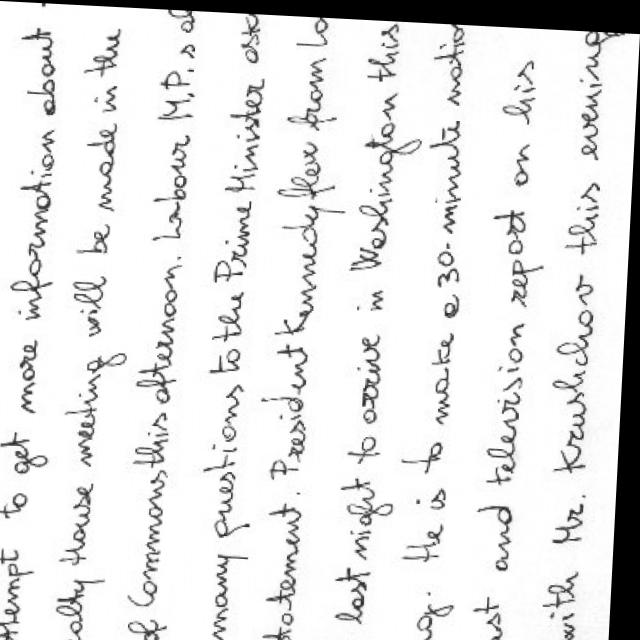 ttempt to get more information about
alty House meeting will be made in the
of Commons this afternoon. Labour M.P.s al
many questions to the Prime Minister ask
tatement. President Kennedy flew from Lo
last night to arrive in Washington this
g. He is to make a 30-minute natio
st and television report on his
with Mr. Krushchov this evening